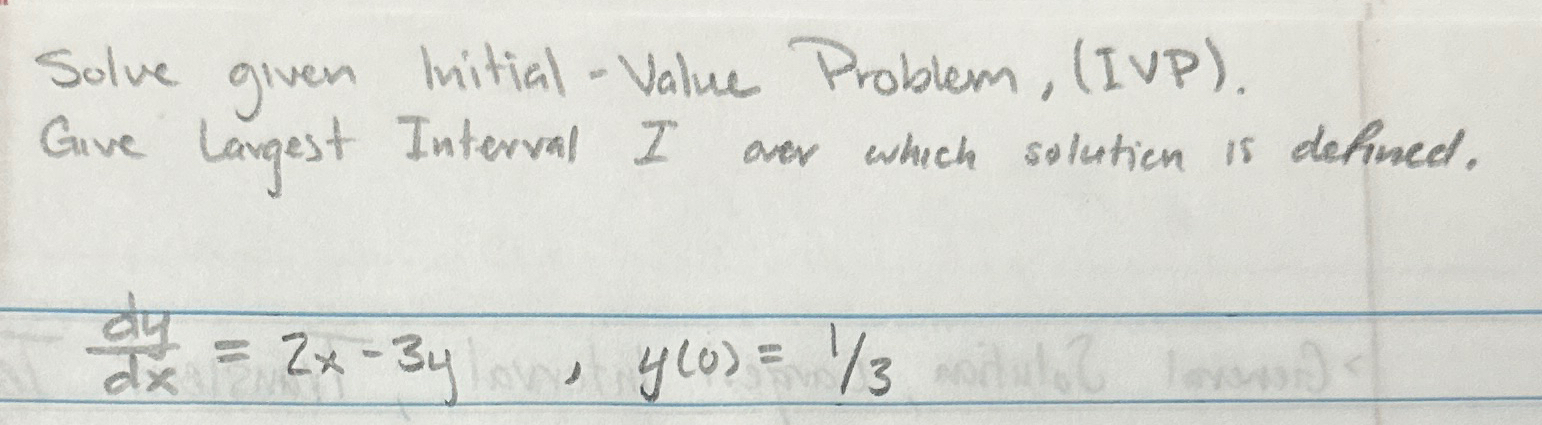 Solve given Initial-Value Problem, (IVP).
Give Largest Interval I over which solution is defined.
dy/dx = 2x - 3y , y(0) = 1/3